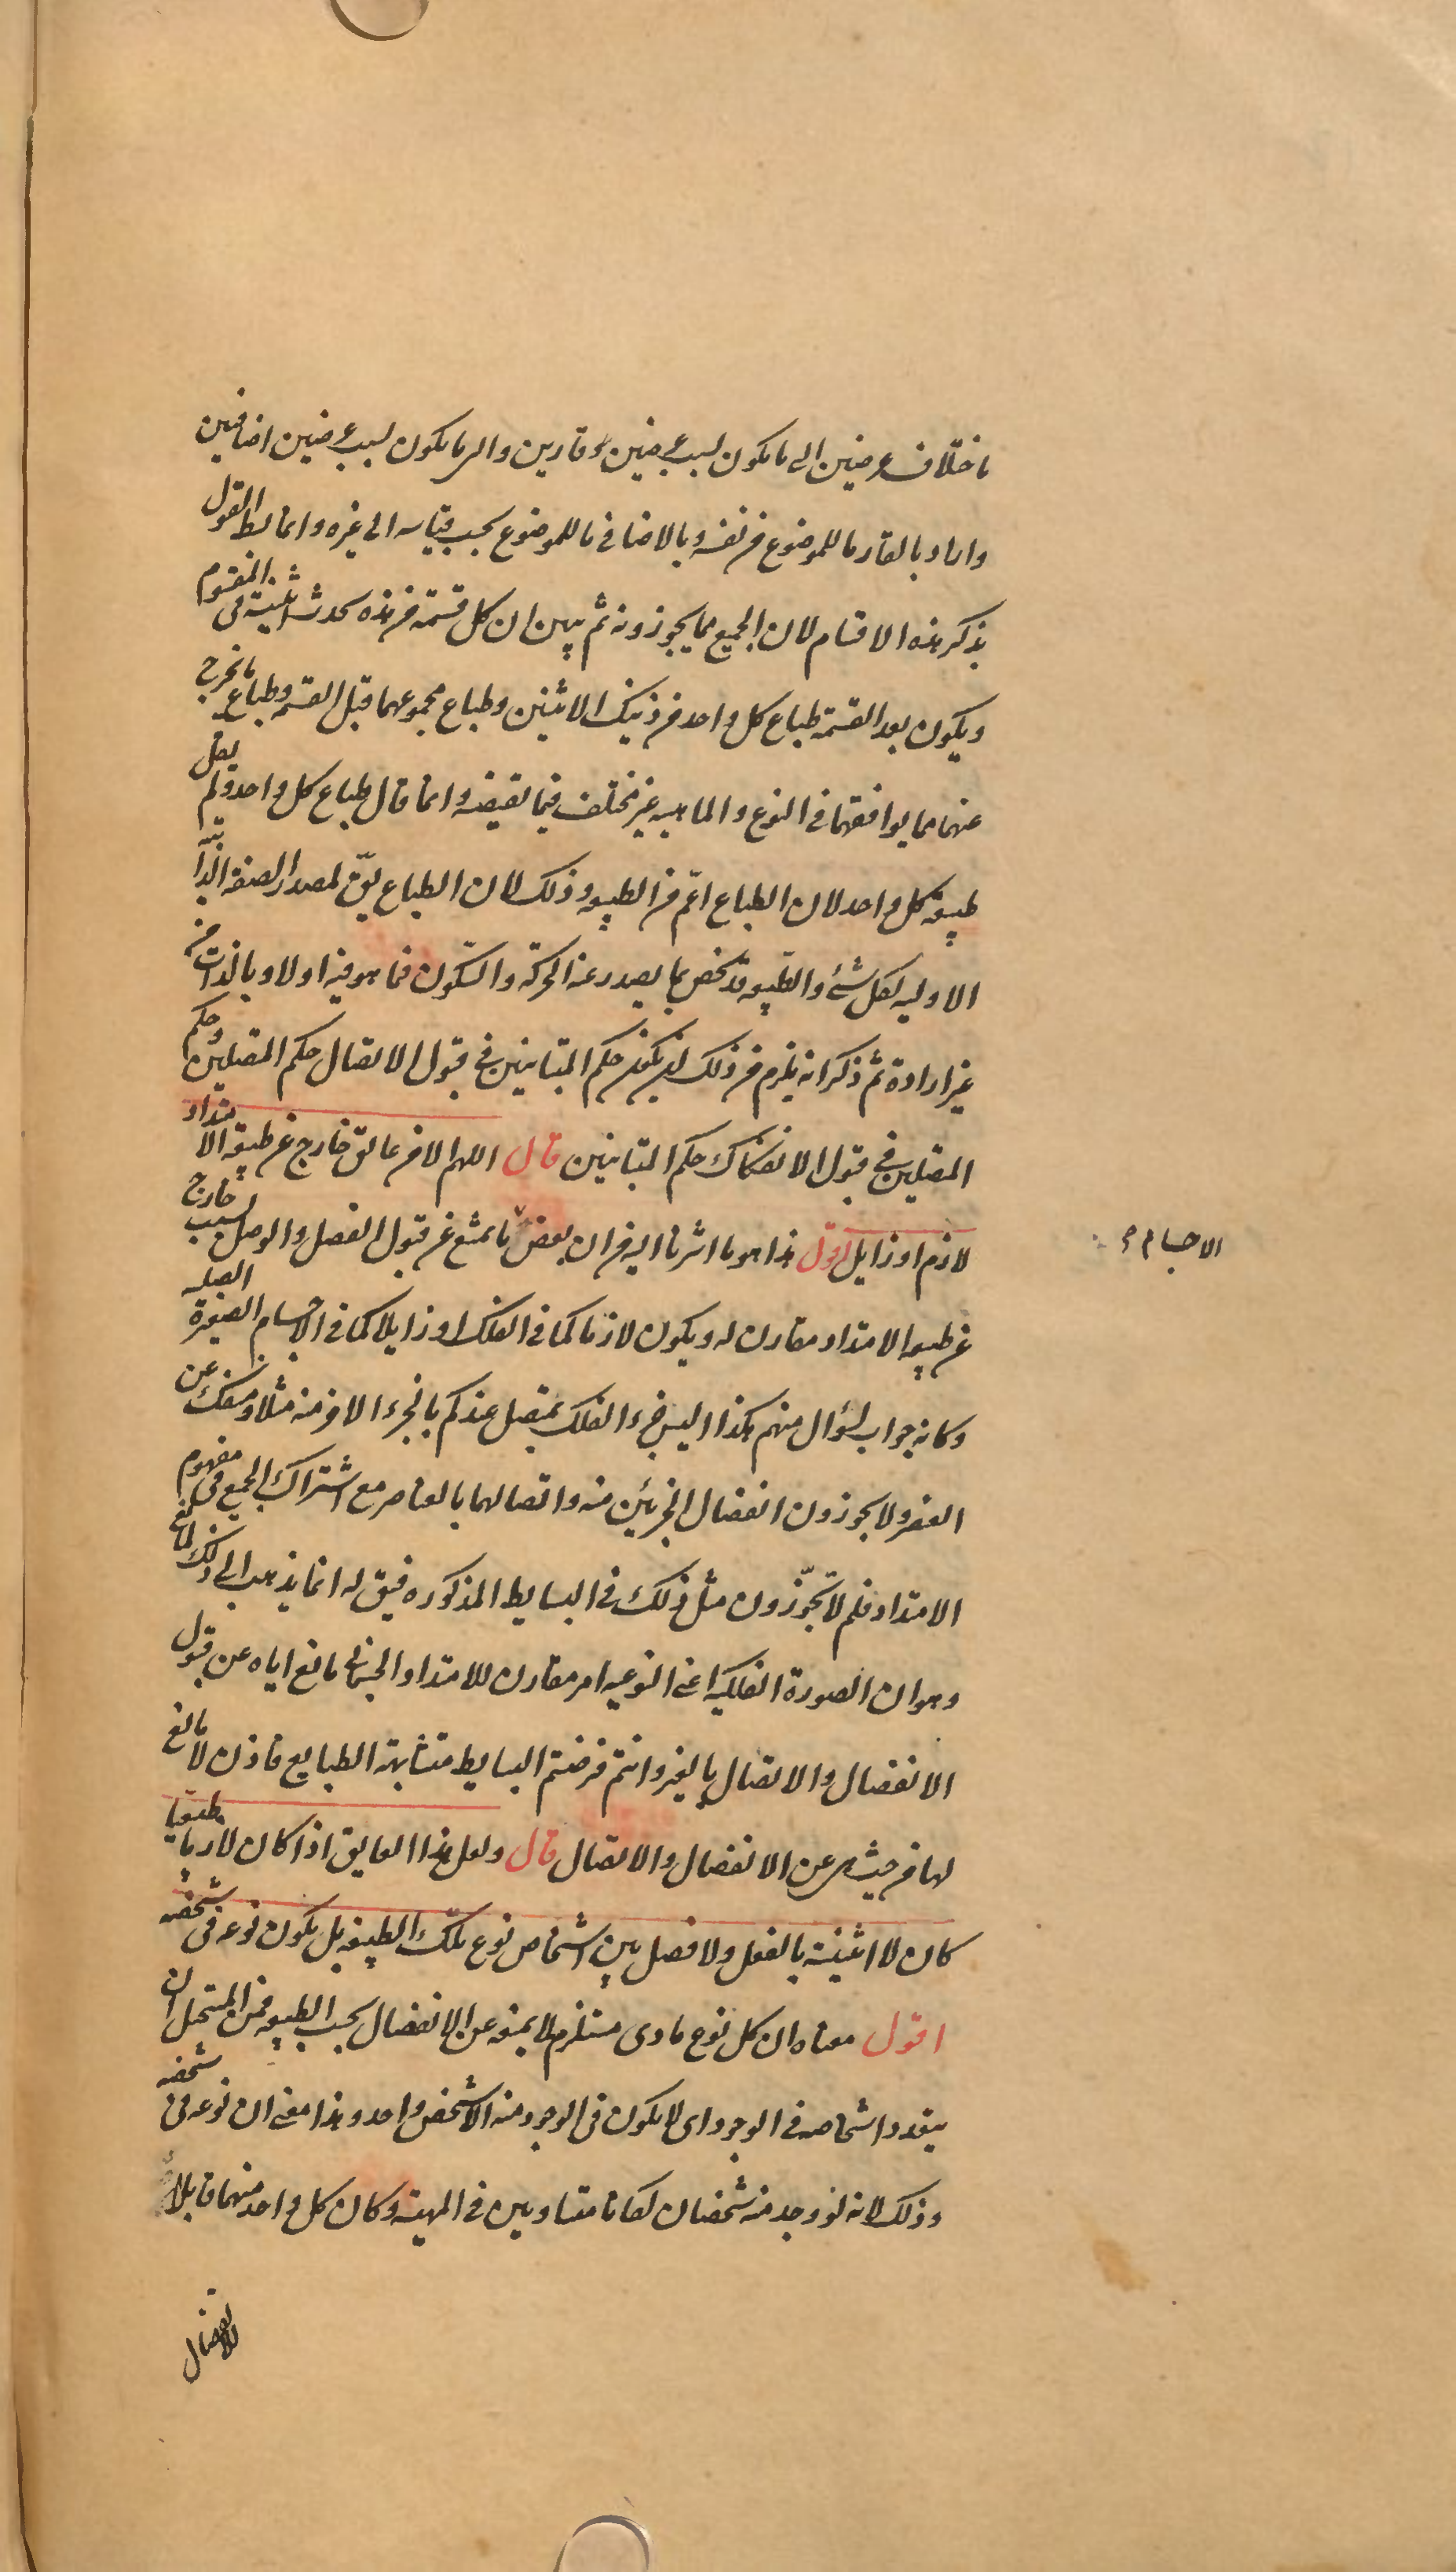 باختلاف عرضين الى ما يكون بسبب عرضين قارين والى ما يكون بسبب عرضين اضافيين
واراد بالقار ما للموضوع فى نفسه وبالاضافى ما للموضوع بحسب قياسه الى غيره وانما بسط القول
بذكر هذه الاقسام لان الجميع مما يجوزونه ثم بين ان كل قسمة من هذه تحدث اثنينية فى المقسوم
ويكون بعد القسمة طباع كل واحد من ذينك الاثنين وطباع مجموعهما قبل القسمة وطباع ما يخرج
عنهما مما يوافقهما فى النوع والماهيه غير مختلف فيما يقتضيه وانما قال طباع كل واحد ولم يقل
طبيعة كل واحد لان الطباع اعم من الطبيعه وذلك لان الطباع يق لمصدر الصفة الذاتية
الاوليه لكل شئ والطبيعه قد تخص بما يصدر عنه الحركة والسكون فيما هو فيه اولا وبالذات من
غير ارادة ثم ذكر انه يلزم من ذلك ان يكون حكم المتباينين فى قبول الاتصال حكم المتصلين وحكم
المتصلين فى قبول الانفكاك حكم المتباينين قال اللهم الا من عائق خارج عن طبيعة الامتداد
لازم او زايل اقول هذا هو ما اشرنا اليه من ان بعض ما يمتنع عن قبول الفصل والوصل بسبب خارج
الاجسام
عن طبيعه الامتداد مقارن له ويكون لازما كما فى الفلك او زايلا كما فى الاجسام الصغيرة الصلبه
وكانه جواب لسؤال منهم هكذا اليس جزء الفلك بمتصل عندكم بالجزء الاخر منه مثلا ومنفك عن
العنصر ولا يجوزون انفصال الجزئين منه واتصالهما بالعناصر مع اشتراك الجميع فى مفهوم
الامتداد فلم لا تجوّزون مثل ذلك فى البسايط المذكوره فيق له انما يذهب الى ذلك لمانع
وهو ان الصورة الفلكية اعنى النوعيه امر مقارن للامتداد الجسمانى مانع اياه عن قبول
الانفصال والاتصال بالغير وانتم فرضتم البسايط متشابهة الطبايع فاذن لا مانع
لها من حيث هى عن الانفصال والاتصال قال ولعل هذا العايق اذا كان لازما طبيعيا
كان لا اثنينية بالفعل ولا فصل بين اشخاص نوع تلك الطبيعه بل يكون نوعه فى شخصه
اقول معناه ان كل نوع مادى مستلزم لما يمنعه عن الانفصال بحسب الطبيعه فمن المستحيل ان
يتعدد اشخاصه فى الوجود اى لا يكون فى الوجود منه الا شخص واحد وهذا معنى ان نوعه فى شخصه
وذلك لانه لو وجد منه شخصان لكانا متساويين فى المهية وكان كل واحد منهما قابلا
للانفصال